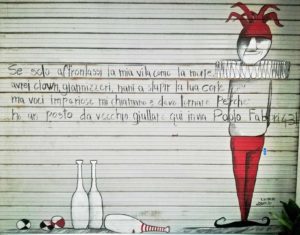 Se solo affrontassi la mia vita come la morte
avrei clown, giannizzeri, nani a stupir la tua corte
ma voci imperiose mi chiamano e devo tornare perché
ho un posto da vecchio giullare qui in via Paolo Fabbri 43